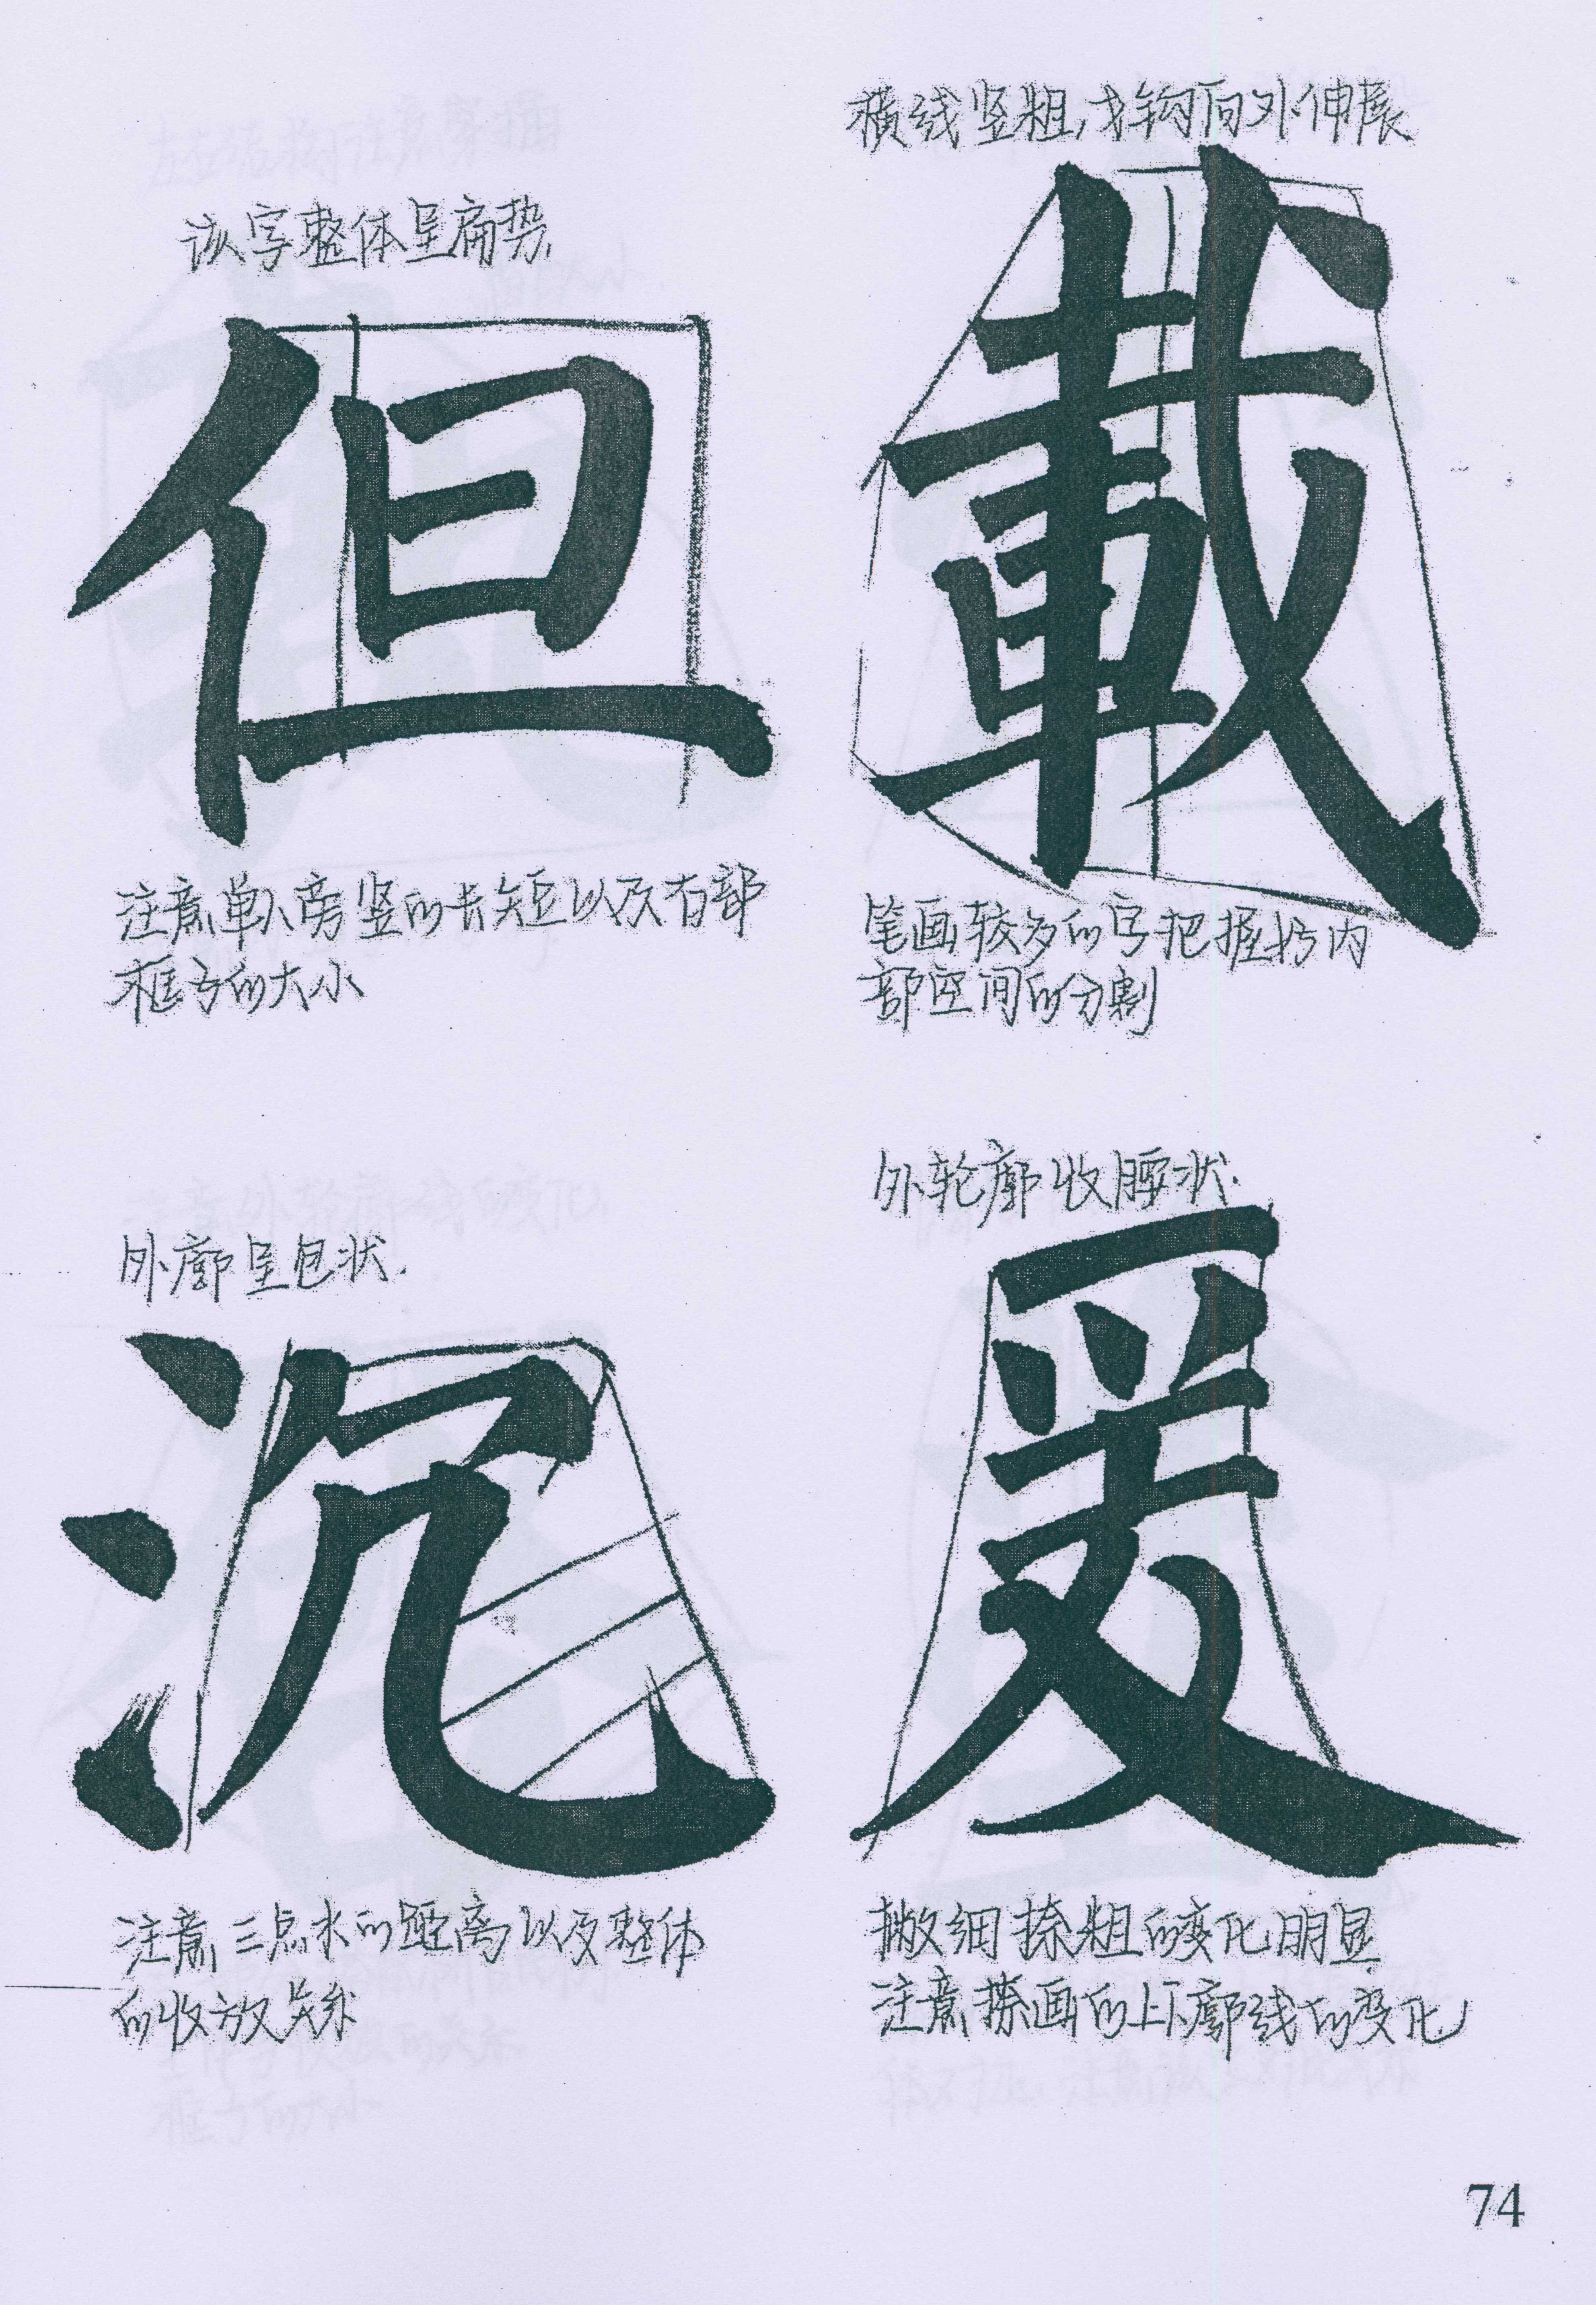 该字整体呈扁势
但
注意单人旁竖的长短以及右部
框子的大小
横线竖粗,戈钩向外伸展
載
笔画较多的字把握好内
部空间的分割
外廓呈包状.
沉
注意三点水的距离以及整体
的收放关系
外轮廓收腰状.
爰
撇细捺粗的变化明显
注意捺画的上下廓线的变化
74